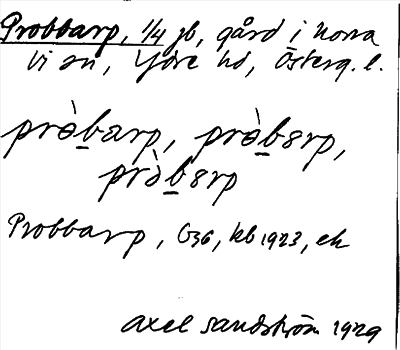 Probbarp, 1/4 jb, gård i Norra
Vi sn, Ydre hd, Österg. l.
pròbarp, pròbərp,
pròbərp
Probbarp, G36, kb 1923, ek
Axel Sandström 1929